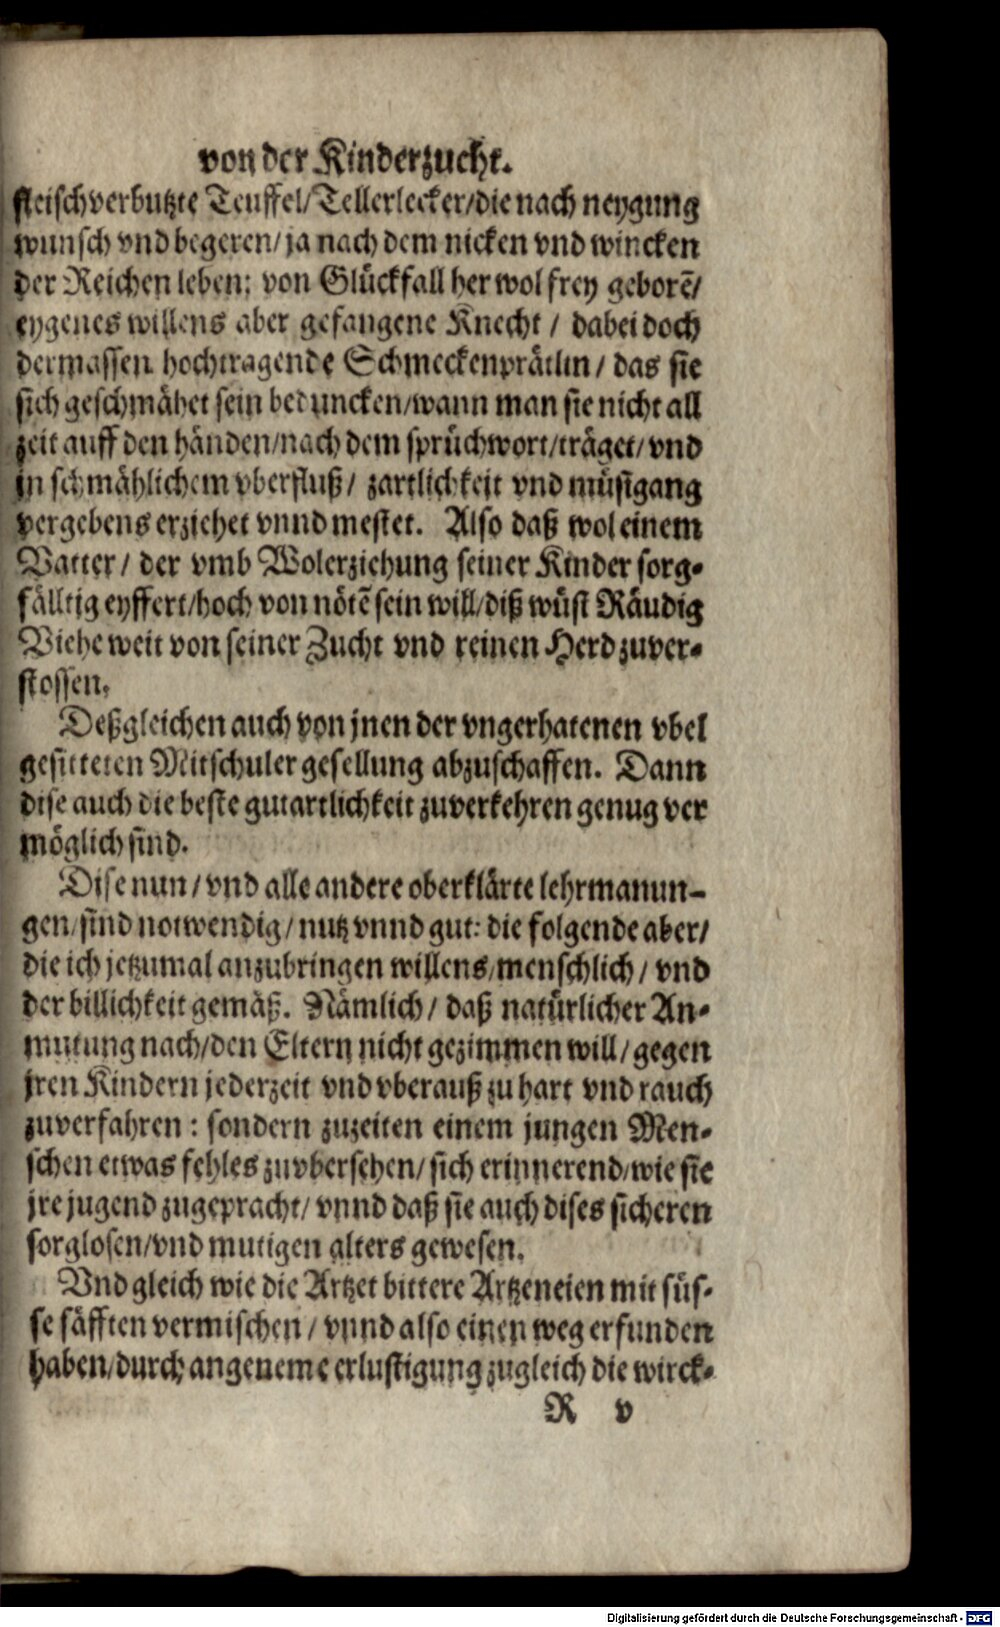 von der Kinderzucht.
fleischverbutzte Teuffel/Tellerlecker/die nach neygung
wunsch vnd begeren/ja nach dem nicken vnd wincken
der Reichen leben: von Glückfall her wol frey geborẽ/
eygenes willens aber gefangene Knecht / dabei doch
dermassen hochtragende Schmeckenprätlin / das sie
sich geschmähet sein beduncken/wann man sie nicht all
zeit auff den händen/nach dem sprüchwort/träget/vnd
in schmählichem vberfluß / zartlichkeit vnd müsigang
vergebens erziehet vnnd mestet. Also daß wol einem
Vatter / der vmb Wolerziehung seiner Kinder sorg-
fälltig eyffert/hoch von nötẽ sein will/diß wüst Räudig
Viehe weit von seiner Zucht vnd reinen Herd zuver-
stossen.
Deßgleichen auch von jnen der vngerhatenen vbel
gesitteten Mitschuler gesellung abzuschaffen. Dann
dise auch die beste gutartlichkeit zuverkehren genug ver
möglich sind.
Dise nun / vnd alle andere oberklärte lehrmanun-
gen/sind notwendig / nutz vnnd gut: die folgende aber/
die ich jetzumal anzubringen willens/menschlich / vnd
der billichkeit gemäß. Nämlich / daß natürlicher An-
mutung nach/den Eltern nicht gezimmen will / gegen
jren Kindern jederzeit vnd vberauß zu hart vnd rauch
zuverfahren : sondern zuzeiten einem jungen Men-
schen etwas fehles zuvbersehen / sich erinnerend/wie sie
jre jugend zugepracht / vnnd daß sie auch dises sicheren
sorglosen/vnd mutigen alters gewesen.
Vnd gleich wie die Artzet bittere Artzeneien mit süs-
se säfften vermischen / vnnd also einen weg erfunden
haben/durch angeneme erlustigung zugleich die wirck-
R v
Digitalisierung gefördert durch die Deutsche Forschungsgemeinschaft - DFG